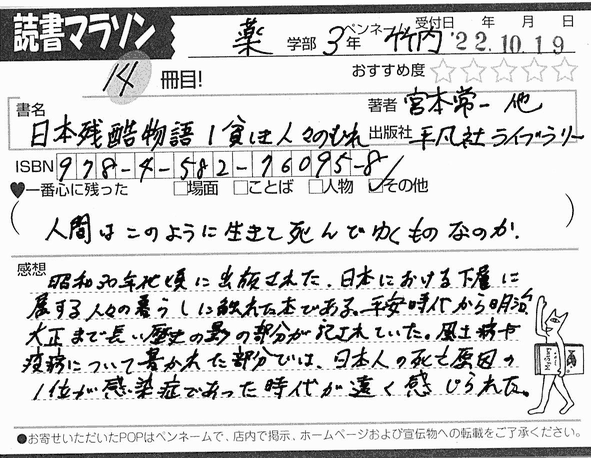 読書マラソン
薬 学部 3年 ペンネーム 竹内 受付日 年 月 日 '22.10.19
14 冊目! おすすめ度 ☆☆☆☆☆
書名 著者 宮本常一 他
日本残酷物語 1 貧しき人々のむれ 出版社 平凡社ライブラリー
ISBN 978-4-582-76095-8
♥一番心に残った □場面 □ことば □人物 ☑その他
(人間はこのように生きて死んでゆくものなのか.)
感想
昭和30年代頃に出版された、日本における下層に
属する人々の暮らしに触れた本である。平安時代から明治、
大正まで長い歴史の影の部分が記されていた。風土病や
疫病について書かれた部分では、日本人の死亡原因の
1位が感染症であった時代が遠く感じられた。
●お寄せいただいたPOPはペンネームで、店内で掲示、ホームページおよび宣伝物への転載をご了承ください。